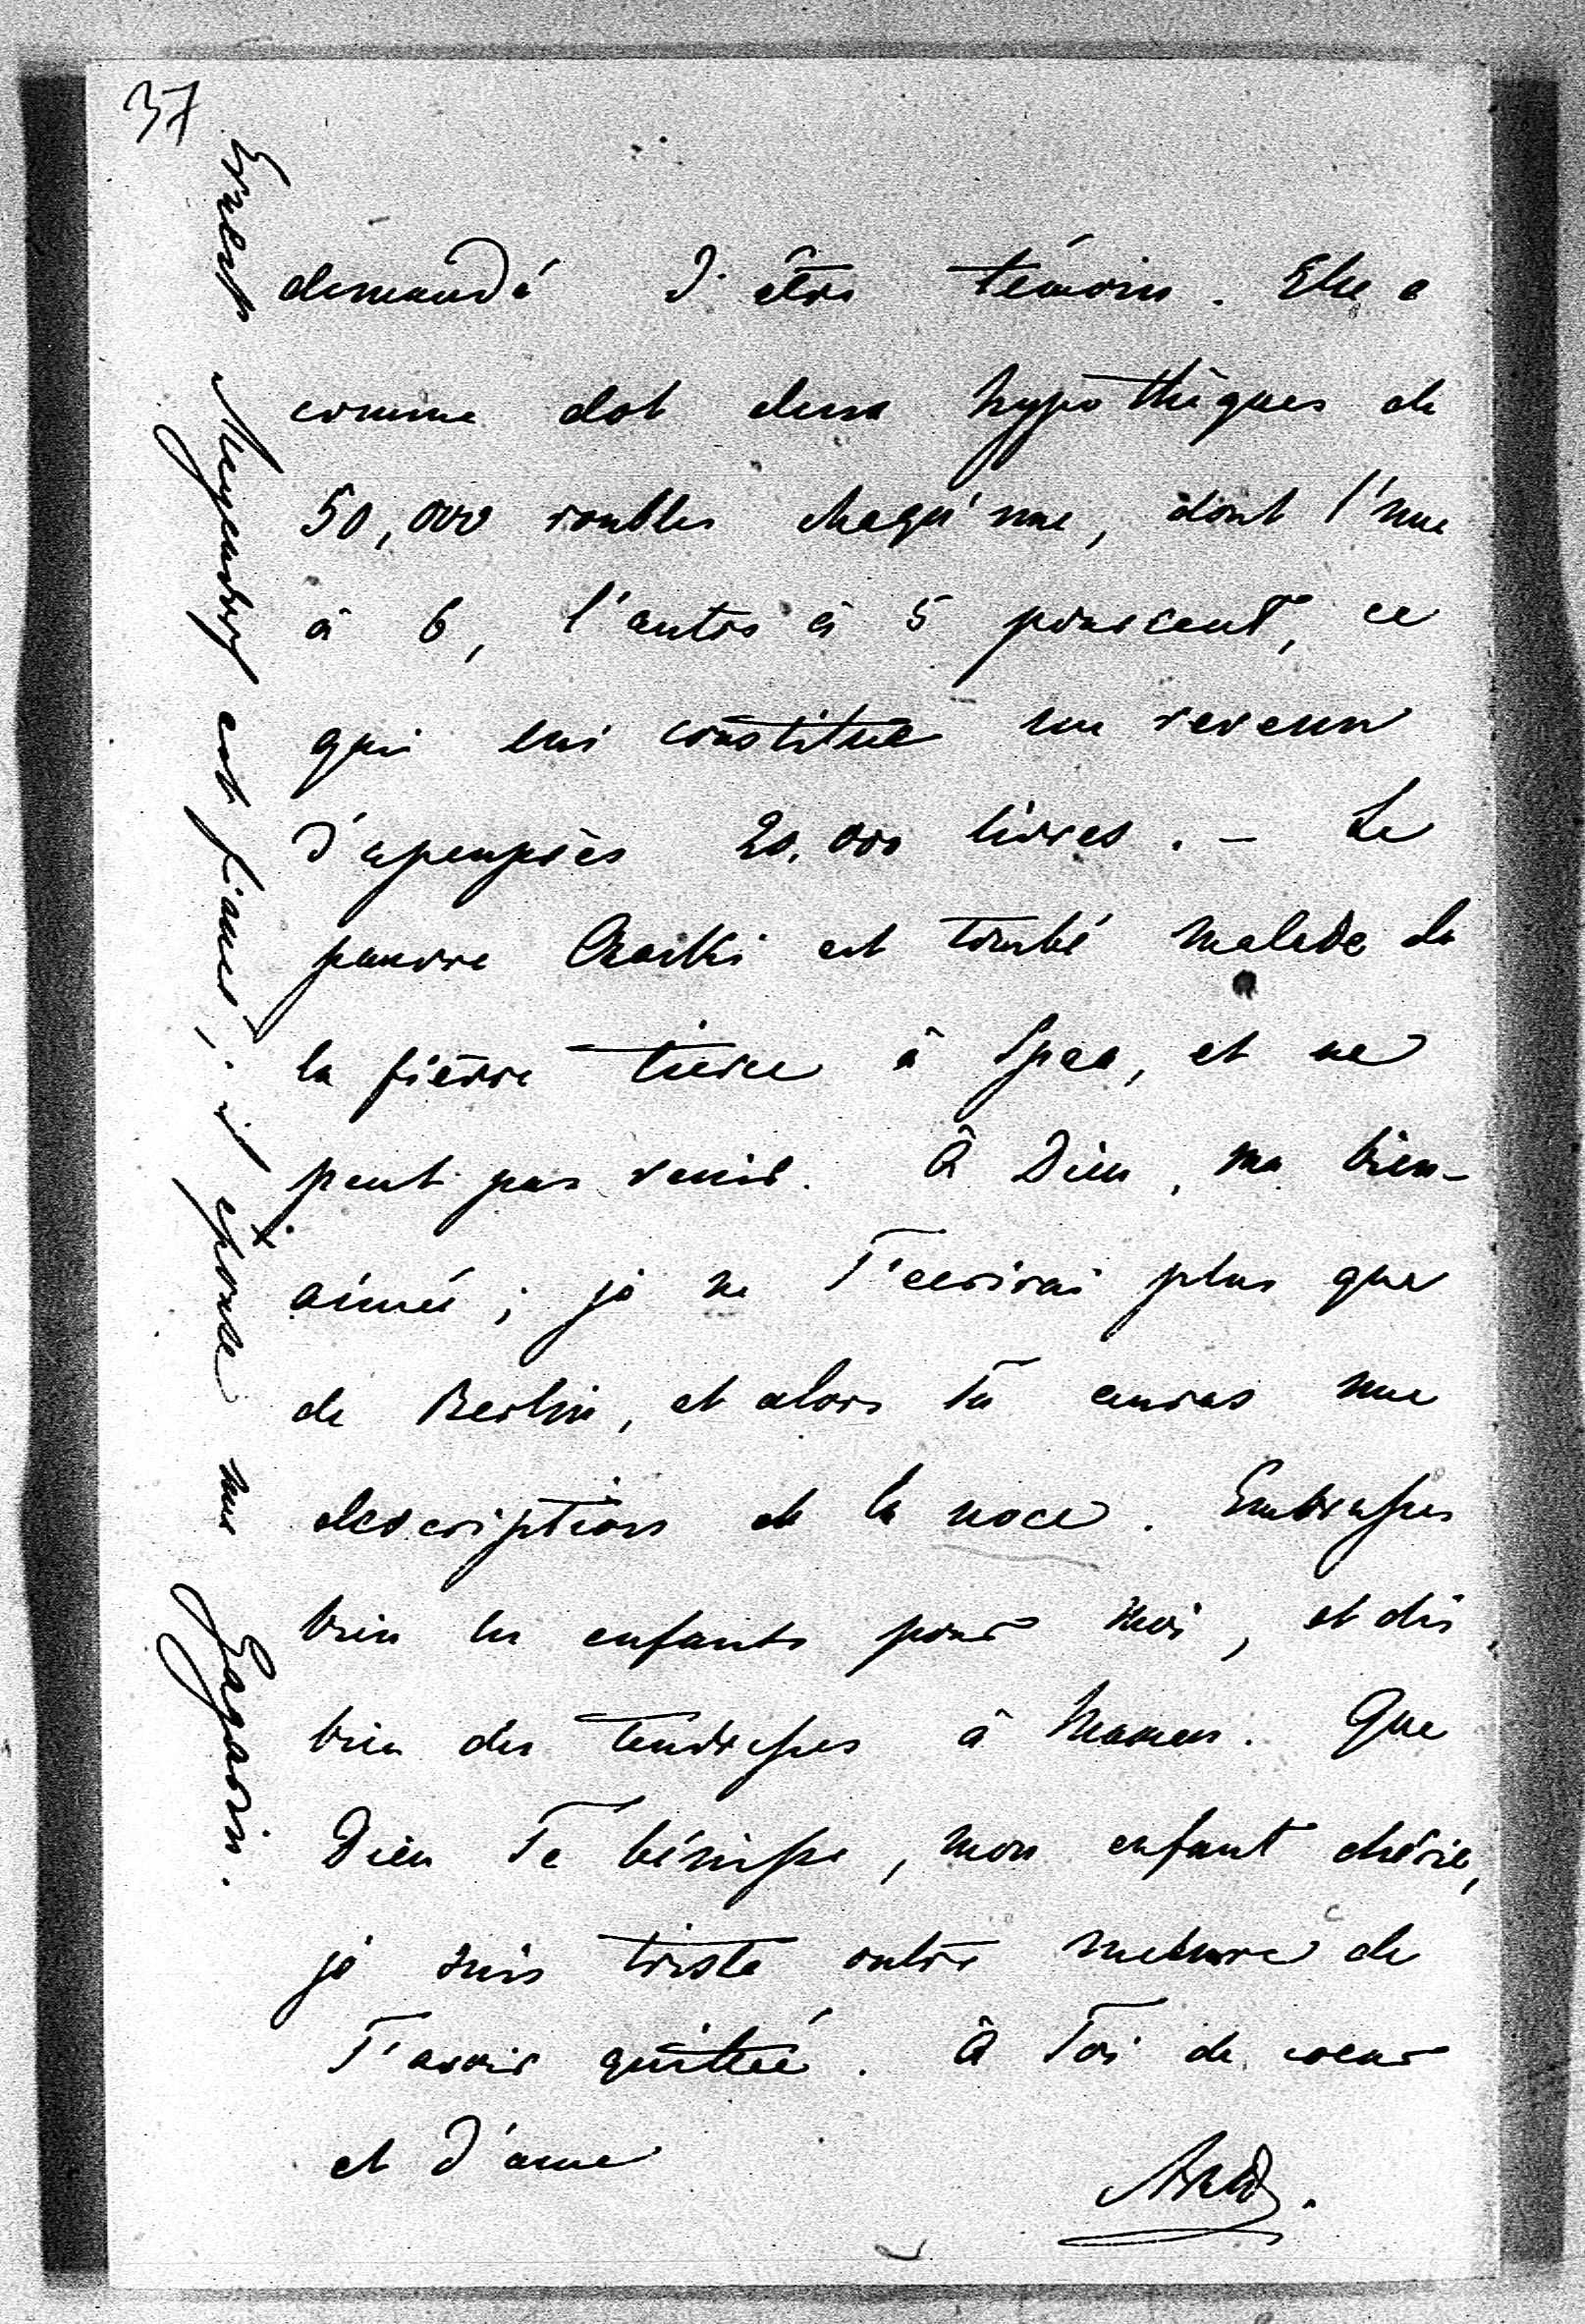 37
demandé d'être témoin. Elle a
comme dot deux hypothèques de
50,000 roubles chaqu'une, dont l'une
à 6, l'autre à 5 pourcent, ce
qui lui constitue un revenu
d'apeuprès 20.000 livres. – Le
pauvre est tombé malade de
la fièvre tierce à Spaa, et ne
peut pas venir. À Dieu, ma bien-
aimée ; je ne T'ecrirai plus que
de Berlin, et alors Tu auras une
description de la noce. Embrasses
bien les enfants pour moi, et dis
bien des tendresses à Maman. Que
Dieu Te bénisse, mon enfant chérie,
je suis triste outre mesure de
T'avoir quittée. À Toi de coeur
et d'ame
Ernest est fiancé ; il épouse une Gagarin.